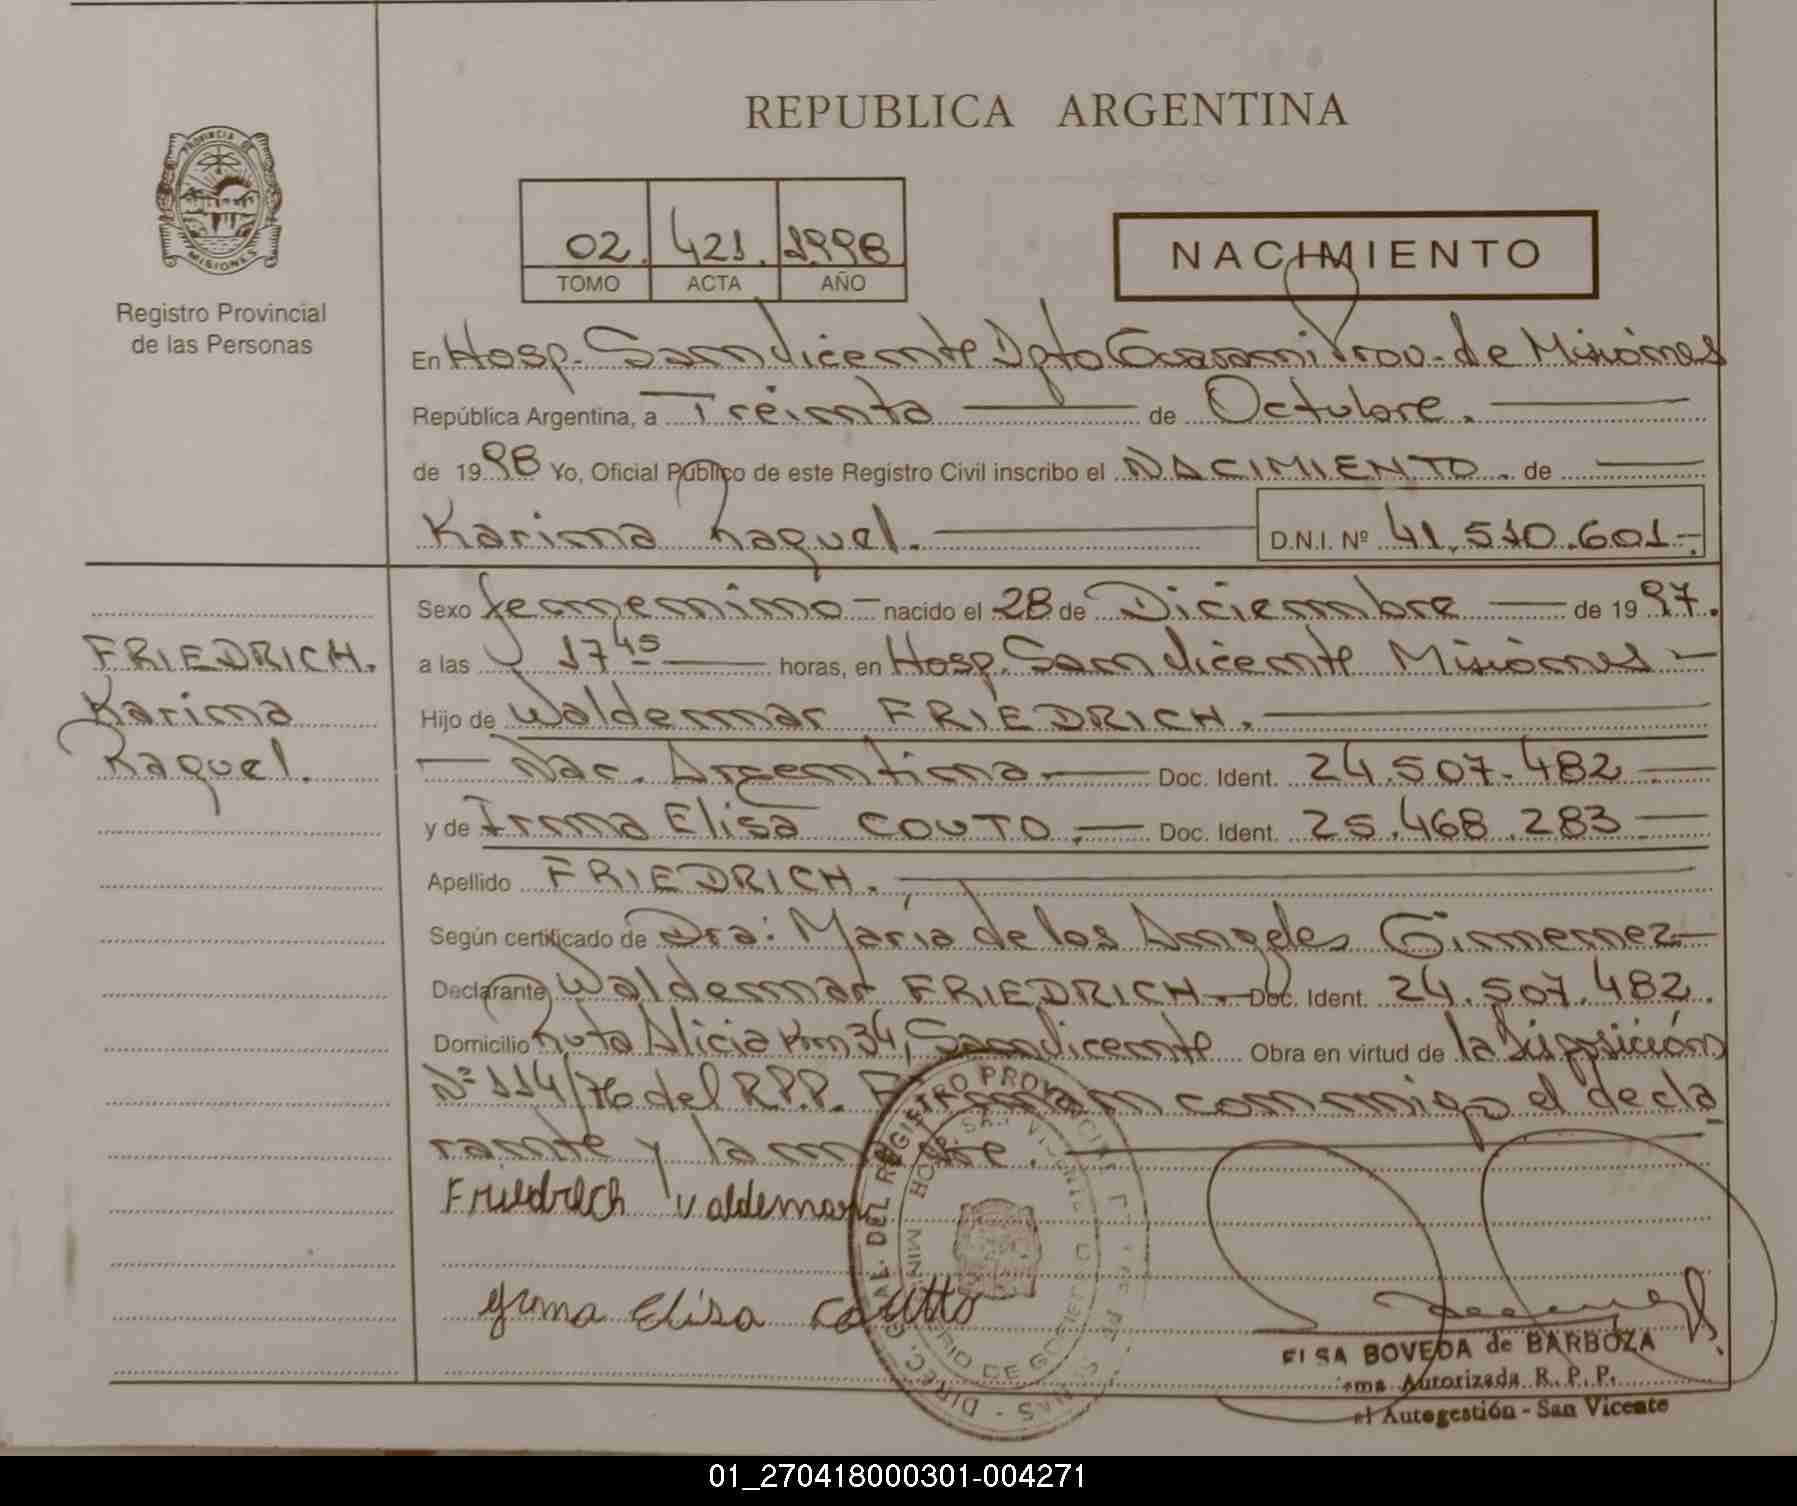 REPUBLICA ARGENTINA
PROVINCIA DE MISIONES
Registro Provincial
de las Personas
02. 421. 1998
TOMO ACTA AÑO
NACIMIENTO
En Hosp. San Vicente Dpto Guarani Prov. de Misiones
República Argentina, a Treinta de Octubre.
de 1998 Yo, Oficial Público de este Registro Civil inscribo el NACIMIENTO. de
Karina Raquel. D.N.I. Nº 41.510.601.-
FRIEDRICH.
Karina
Raquel.
Sexo femenino - nacido el 28 de Diciembre de 1997.
a las 17 45 horas, en Hosp. San Vicente Misiones -
Hijo de Waldemar FRIEDRICH.
Nac. Argentina. Doc. Ident. 24.507.482
y de Irma Elisa COUTO. Doc. Ident. 25.468.283
Apellido FRIEDRICH.
Según certificado de Dra: María de los Angeles Gimenez
Declarante Waldemar FRIEDRICH. Doc. Ident. 24.507.482.
Domicilio Ruta Alicia Km 34, San Vicente Obra en virtud de la Disposición
Nº 114/76 del R.P.P. Firman conmigo el decla
rante y la madre.
Friedrich Valdemar
Yrma Elisa Coutto
DIREC. GRAL. DEL REGISTRO PROVINCIAL
HOSP. SAN VICENTE
MINISTERIO DE GOBIERNO
ELSA BOVEDA de BARBOZA
Autorizada R. P. P.
Autogestión - San Vicente
01_270418000301-004271